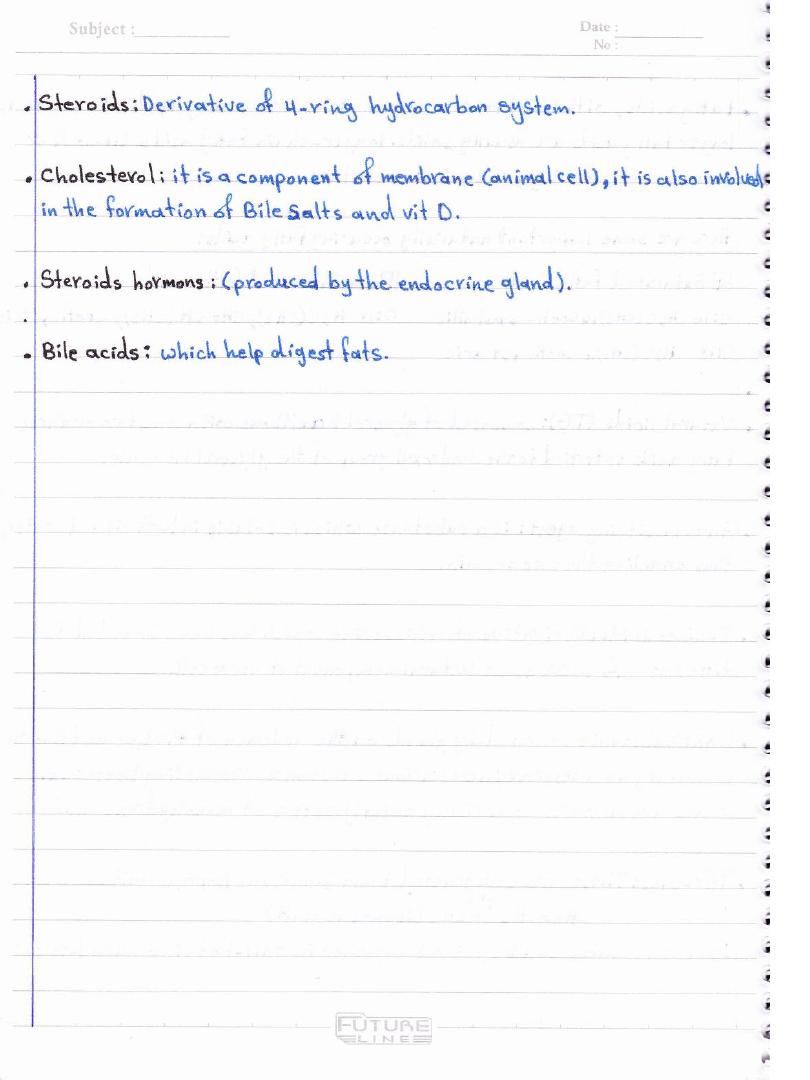 Subject :
Date :
No :
. Steroids: Derivative of 4-ring hydrocarbon system.
. Cholesterol: it is a component of membrane (animal cell), it is also involved
in the formation of Bile Salts and vit D.
. Steroids hormons: (produced by the endocrine gland).
.
. Bile acids: which help digest fats.
FUTURE
LINE